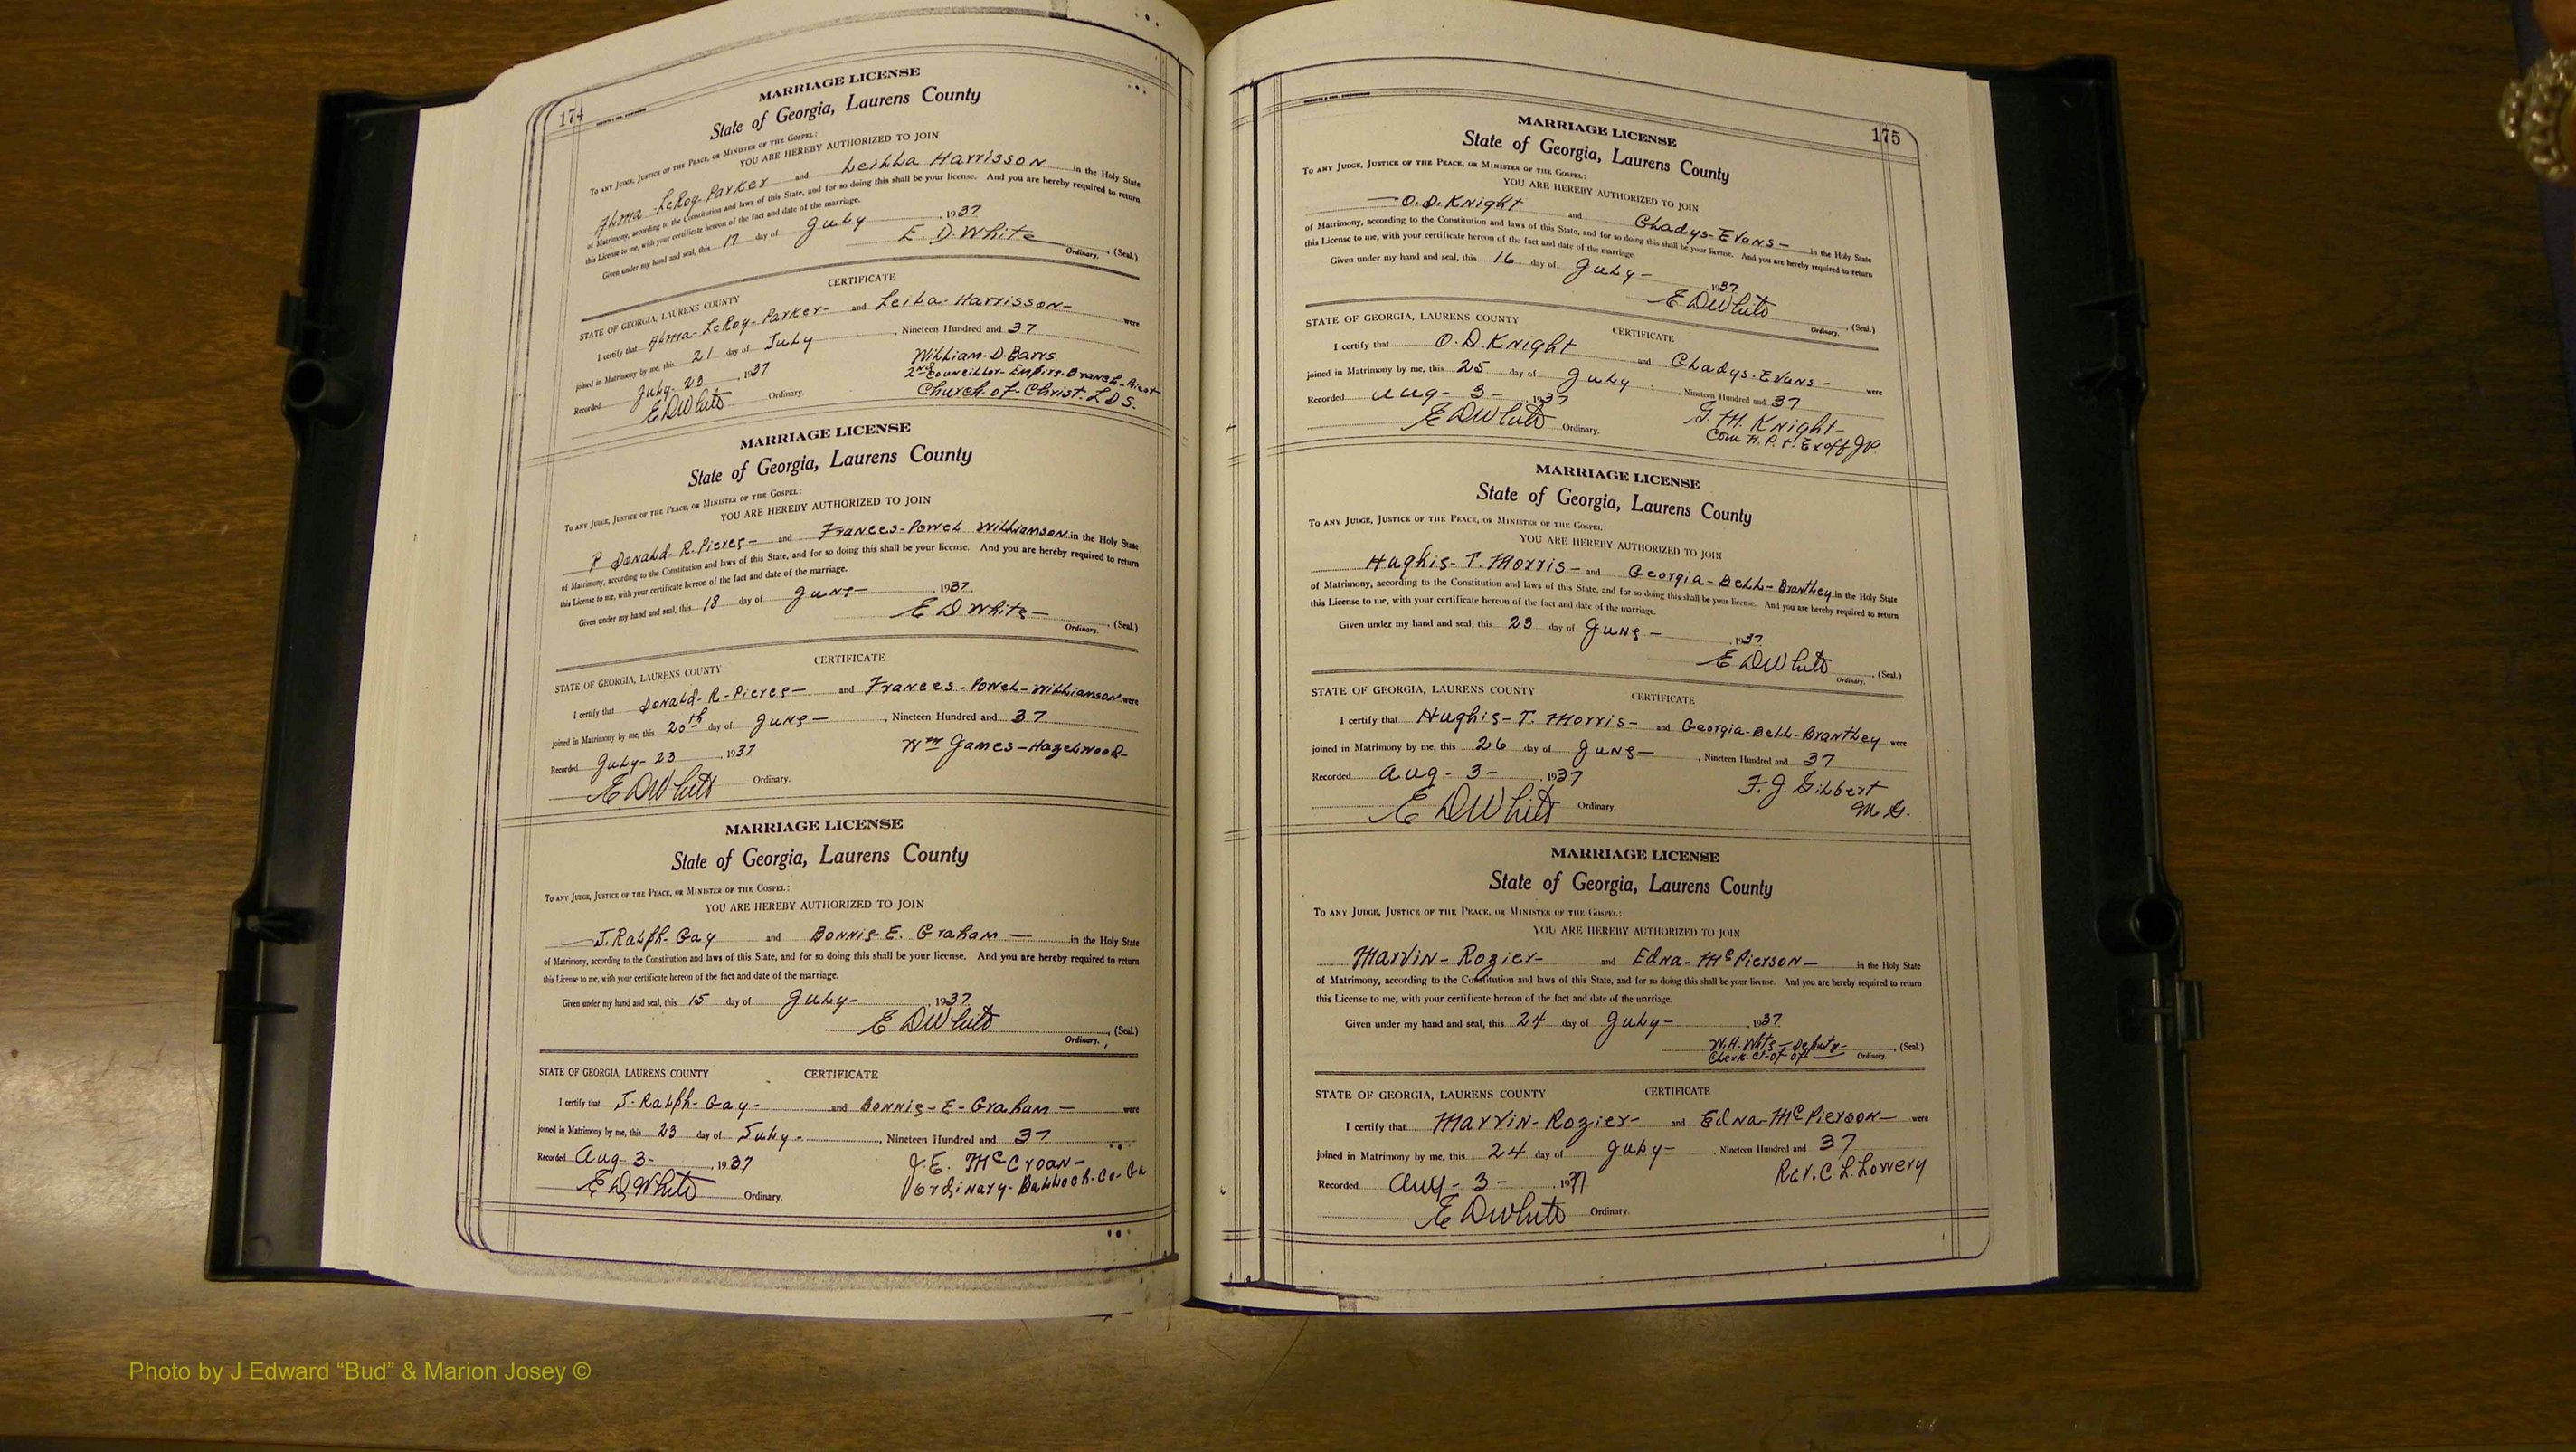 174
MARRIAGE LICENSE
State of Georgia, Laurens County
To any Judge, Justice of the Peace, or Minister of the Gospel:
YOU ARE HEREBY AUTHORIZED TO JOIN
Alma-LeRoy-Parker and Leihla Harrisson in the Holy State
of Matrimony, according to the Constitution and laws of this State, and for so doing this shall be your license. And you are hereby required to return
this License to me, with your certificate hereon of the fact and date of the marriage.
Given under my hand and seal, this 17 day of July 1937
E. D. White (Seal.)
Ordinary.
CERTIFICATE
STATE OF GEORGIA, LAURENS COUNTY
I certify that Alma-LeRoy-Parker- and Leila-Harrisson- were
joined in Matrimony by me, this 21 day of July, Nineteen Hundred and 37
Recorded July-23, 1937 William-D. Barrs
2nd Councillor-Empire-Branch-Priest
E D White Ordinary. Church-of-Christ-L D S.
MARRIAGE LICENSE
State of Georgia, Laurens County
To any Judge, Justice of the Peace, or Minister of the Gospel:
YOU ARE HEREBY AUTHORIZED TO JOIN
P Donald-R-Pierce- and Frances-Powel Williamson in the Holy State
of Matrimony, according to the Constitution and laws of this State, and for so doing this shall be your license. And you are hereby required to return
this License to me, with your certificate hereon of the fact and date of the marriage.
Given under my hand and seal, this 18 day of June- 1937
E D White- (Seal.)
Ordinary.
CERTIFICATE
STATE OF GEORGIA, LAURENS COUNTY
I certify that Donald-R-Pierce- and Frances-Powel-Williamson were
joined in Matrimony by me, this 20th day of June-, Nineteen Hundred and 37
Recorded July-23 1937 Wm James-Hazelwood-
E D White Ordinary.
MARRIAGE LICENSE
State of Georgia, Laurens County
To any Judge, Justice of the Peace, or Minister of the Gospel:
YOU ARE HEREBY AUTHORIZED TO JOIN
J. Ralph-Gay and Bonnie-E. Graham- in the Holy State
of Matrimony, according to the Constitution and laws of this State, and for so doing this shall be your license. And you are hereby required to return
this License to me, with your certificate hereon of the fact and date of the marriage.
Given under my hand and seal, this 15 day of July- 1937
E D White (Seal.)
Ordinary.
STATE OF GEORGIA, LAURENS COUNTY CERTIFICATE
I certify that J-Ralph-Gay- and Bonnie-E-Graham- were
joined in Matrimony by me, this 23 day of July-, Nineteen Hundred and 37
Recorded Aug-3-, 1937 J. E. McCroan-
E D White Ordinary. Ordinary-Bulloch-Co-Ga
175
MARRIAGE LICENSE
State of Georgia, Laurens County
To any Judge, Justice of the Peace, or Minister of the Gospel:
YOU ARE HEREBY AUTHORIZED TO JOIN
O. D. Knight and Gladys-Evans- in the Holy State
of Matrimony, according to the Constitution and laws of this State, and for so doing this shall be your license. And you are hereby required to return
this License to me, with your certificate hereon of the fact and date of the marriage.
Given under my hand and seal, this 16 day of July- 1937
E D White (Seal.)
Ordinary.
STATE OF GEORGIA, LAURENS COUNTY CERTIFICATE
I certify that O. D. Knight and Gladys-Evans- were
joined in Matrimony by me, this 25 day of July, Nineteen Hundred and 37
Recorded Aug-3-, 1937 G. M. Knight-
E D White Ordinary. Com N. P. & Ex off J P.
MARRIAGE LICENSE
State of Georgia, Laurens County
To any Judge, Justice of the Peace, or Minister of the Gospel:
YOU ARE HEREBY AUTHORIZED TO JOIN
Hughie-T. Morris- and Georgia-Bell-Brantley in the Holy State
of Matrimony, according to the Constitution and laws of this State, and for so doing this shall be your license. And you are hereby required to return
this License to me, with your certificate hereon of the fact and date of the marriage.
Given under my hand and seal, this 23 day of June- 1937
E D White (Seal.)
Ordinary.
STATE OF GEORGIA, LAURENS COUNTY CERTIFICATE
I certify that Hughie-T. Morris- and Georgia-Bell-Brantley were
joined in Matrimony by me, this 26 day of June-, Nineteen Hundred and 37
Recorded Aug-3-, 1937 F. J. Gilbert
E D White Ordinary. M. G.
MARRIAGE LICENSE
State of Georgia, Laurens County
To any Judge, Justice of the Peace, or Minister of the Gospel:
YOU ARE HEREBY AUTHORIZED TO JOIN
Marvin-Rozier- and Edna-McPierson- in the Holy State
of Matrimony, according to the Constitution and laws of this State, and for so doing this shall be your license. And you are hereby required to return
this License to me, with your certificate hereon of the fact and date of the marriage.
Given under my hand and seal, this 24 day of July- 1937
W. H. Deputy- (Seal.)
Clerk Ordinary.
STATE OF GEORGIA, LAURENS COUNTY CERTIFICATE
I certify that Marvin-Rozier- and Edna-McPierson- were
joined in Matrimony by me, this 24 day of July-, Nineteen Hundred and 37
Recorded Aug-3-, 1937 Rev. C. L. Lowery
E D White Ordinary.
Photo by J Edward “Bud” & Marion Josey ©